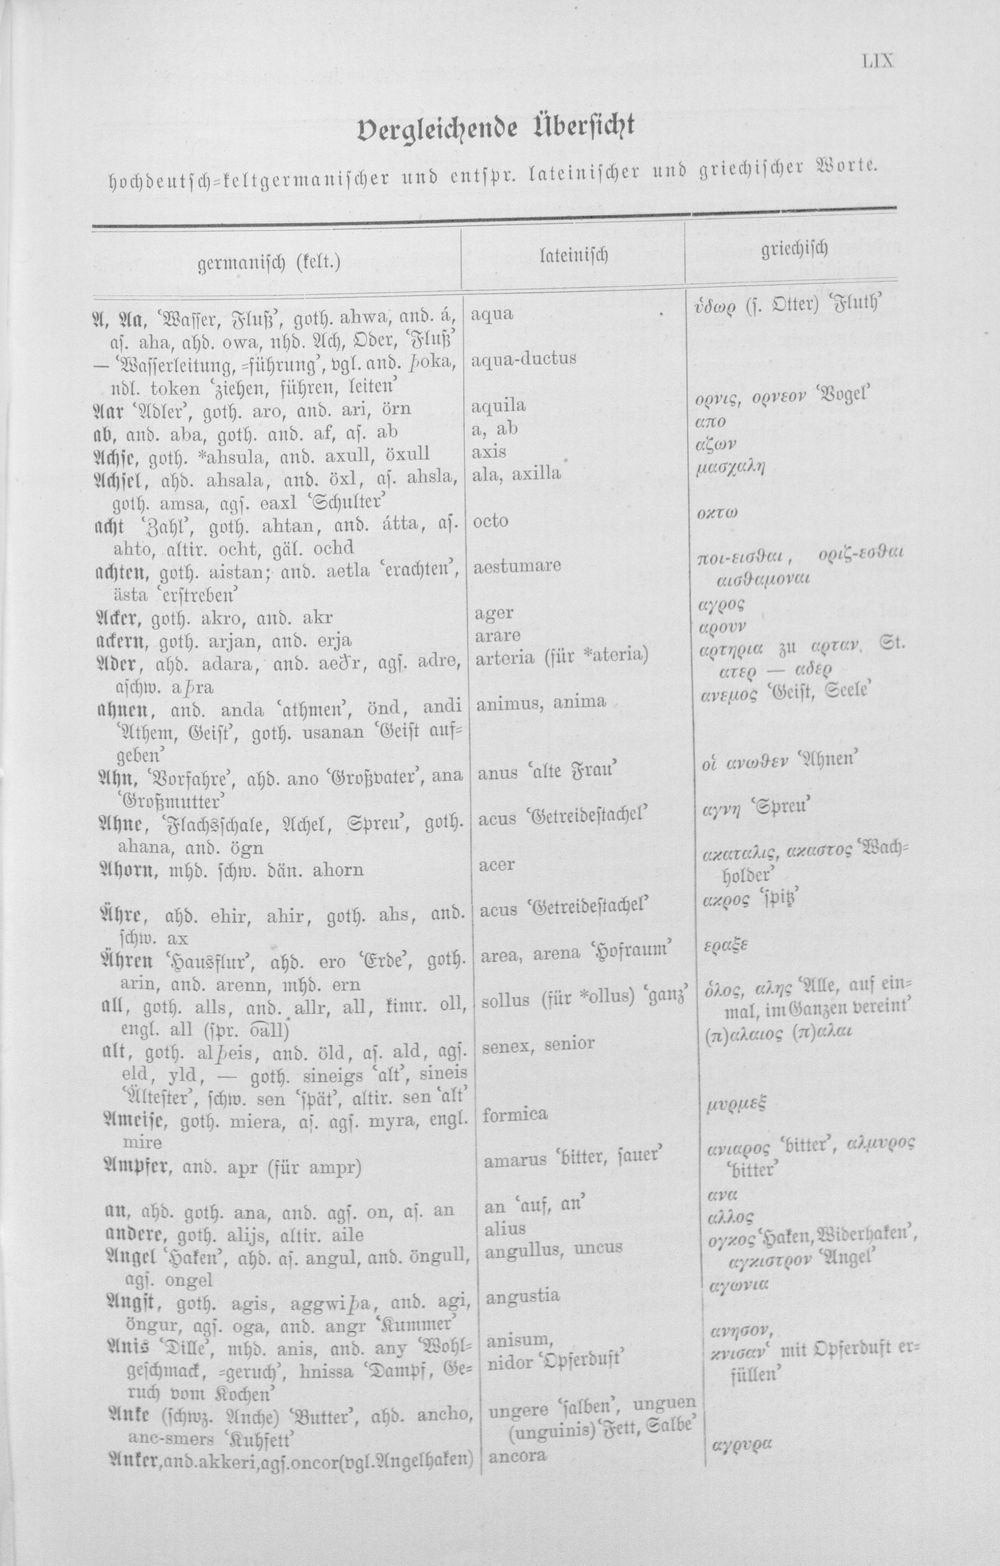 LIX
Vergleichende Übersicht
hochdeutsch-keltgermanischer und entspr. lateinischer und griechischer Worte.
germanisch (kelt.)
lateinisch
griechisch
A, Aa, ‘Wasser, Fluß’, goth. ahwa, and. á,
as. aha, ahd. owa, nhd. Ach, Oder, ‘Fluß’
— ‘Wasserleitung, -führung’, vgl. and. þoka,
ndl. token ‘ziehen, führen, leiten’
Aar ‘Adler’, goth. aro, and. ari, örn
ab, and. aba, goth. and. af, as. ab
Achse, goth. *ahsula, and. axull, öxull
Achsel, ahd. ahsala, and. öxl, as. ahsla,
goth. amsa, ags. eaxl ‘Schulter’
acht ‘Zahl’, goth. ahtan, and. átta, as.
ahto, altir. ocht, gäl. ochd
achten, goth. aistan; and. aetla ‘erachten’,
ästa ‘erstreben’
Acker, goth. akro, and. akr
ackern, goth. arjan, and. erja
Ader, ahd. adara, and. aeðr, ags. adre,
aschw. aþra
ahnen, and. anda ‘athmen’, önd, andi
‘Athem, Geist’, goth. usanan ‘Geist auf-
geben’
Ahn, ‘Vorfahre’, ahd. ano ‘Großvater’, ana
‘Großmutter’
Ahne, ‘Flachsschale, Achel, Spreu’, goth.
ahana, and. ögn
Ahorn, mhd. schw. dän. ahorn
Ähre, ahd. ehir, ahir, goth. ahs, and.
schw. ax
Ähren ‘Hausflur’, ahd. ero ‘Erde’, goth.
arin, and. arenn, mhd. ern
all, goth. alls, and. allr, all, kimr. oll,
engl. all (spr. oall)
alt, goth. alþeis, and. öld, as. ald, ags.
eld, yld, — goth. sineigs ‘alt’, sineis
‘Ältester’, schw. sen ‘spät’, altir. sen ‘alt’
Ameise, goth. miera, as. ags. myra, engl.
mire
Ampfer, and. apr (für ampr)
an, ahd. goth. ana, and. ags. on, as. an
andere, goth. alijs, altir. aile
Angel ‘Haken’, ahd. as. angul, and. öngull,
ags. ongel
Angst, goth. agis, aggwiþa, and. agi,
öngur, ags. oga, and. angr ‘Kummer’
Anis ‘Dille’, mhd. anis, and. any ‘Wohl-
geschmack, -geruch’, hnissa ‘Dampf, Ge-
ruch vom Kochen’
Anke (schwz. Anche) ‘Butter’, ahd. ancho,
anc-smers ‘Kuhfett’
Anker, and. akkeri, ags. oncor (vgl. Angelhaken)
aqua
aqua-ductus
aquila
a, ab
axis
ala, axilla
octo
aestumare
ager
arare
arteria (für *ateria)
animus, anima
anus ‘alte Frau’
acus ‘Getreidestachel’
acer
acus ‘Getreidestachel’
area, arena ‘Hofraum’
sollus (für *ollus) ‘ganz’
senex, senior
formica
amarus ‘bitter, sauer’
an ‘auf, an’
alius
angullus, uncus
angustia
anisum,
nidor ‘Opferduft’
ungere ‘salben’, unguen
(unguinis) ‘Fett, Salbe’
ancora
ὑδωρ (s. Otter) ‘Fluth’
ορνις, ορνεον ‘Vogel’
απο
αζων
μασχαλη
οκτω
ποι-εισθαι, οριζ-εσθαι
αισθαμοναι
αγρος
αρουν
αρτηρια zu αρταν, St.
ατερ — αδερ
ανεμος ‘Geist, Seele’
οἱ ανωθεν ‘Ahnen’
αγνη ‘Spreu’
ακαταλις, ακαστος ‘Wach-
holder’
ακρος ‘spitz’
εραξε
ὁλος, αλης ‘Alle, auf ein-
mal, im Ganzen vereint’
(π)αλαιος (π)αλαι
μυρμεξ
ανιαρος ‘bitter’, αλμυρος
‘bitter’
ανα
αλλος
ογκος ‘Haken, Widerhaken’,
αγκιστρον ‘Angel’
αγωνια
ανησον,
κνισαν ‘mit Opferduft er-
füllen’
αγρυρα